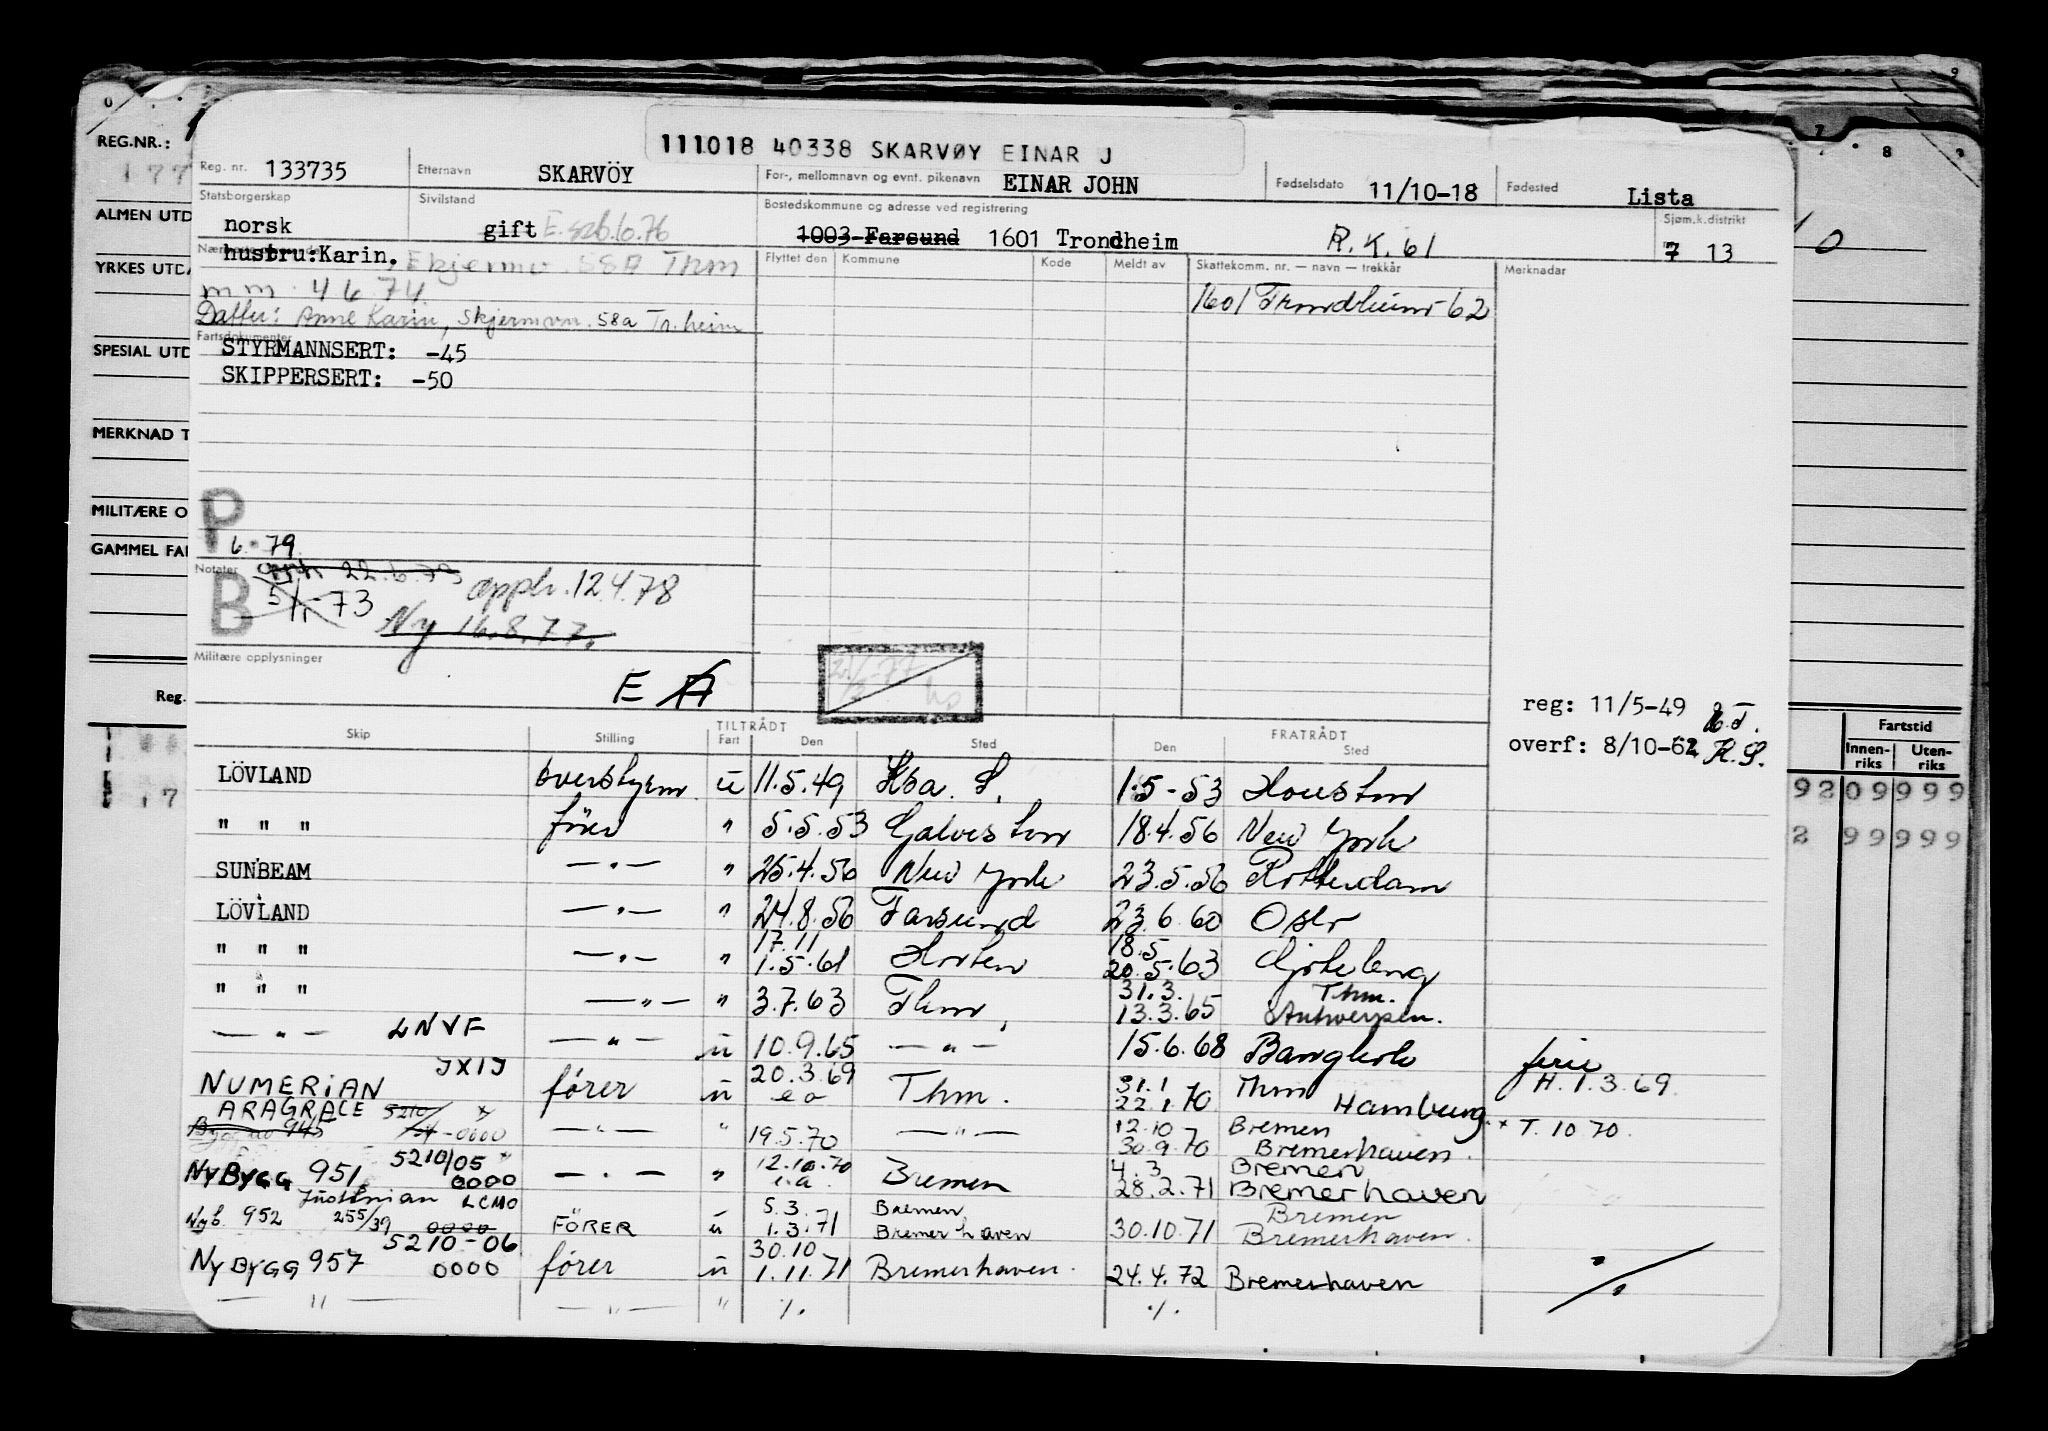 REG.NR.:
ALMEN UTD
YRKES UTDA
SPESIAL UTD
MERKNAD T
MILITÆRE O
GAMMEL FA
Reg.
111018 40338 SKARVØY EINAR J
Reg. nr. 133735 Etternavn SKARVÖY For-, mellomnavn og evnt. pikenavn EINAR JOHN Fødselsdato 11/10-18 Fødested Lista
Statsborgerskap norsk Sivilstand gift Bostedskommune og adresse ved registrering 1003 Farsund 1601 Trondheim R.K. 61 Sjøm.k.distrikt 7 13
hustru: Karin. 58A Thm
mm 4 6 74
Datter: Anne Karin, Skjermvn. 58a Tr.heim
Flyttet den Kommune Kode Meldt av Skattekomm. nr. — navn — trekkår Merknader
1601 Trondheim-62
Fartsdokumenter
STYRMANNSERT: -45
SKIPPERSERT: -50
P
6-79
Notater 22.6.73
B 5/11-73 appl. 12.4.78
Ny 16.8.77.
Militære opplysninger
E A
reg: 11/5-49
overf: 8/10-62 K.S.
Fartstid
Innen-riks Uten-riks
92 09 999
2 99 999
TILTRÅDT FRATRÅDT
Skip Stilling Fart Den Sted Den Sted
LÖVLAND overstyrm u 11.5.49 1.5-53 Houston
" " " förer " 5.5.53 Galveston 18.4.56 New York
SUNBEAM — " — " 25.4.56 New York 23.5.56 Rotterdam
LÖVLAND — " — " 24.8.56 Farsund 23.6.60 Oslo
" " " — " — " 17.11 1.5.61 Horten 18.5 20.5.63 Göteborg
" " " — " — " 3.7.63 Thm. 31.3. 13.3.65 Thm. Antwerpen.
— " — LNVF — " — u 10.9.65 — " — 15.6.68 Bangkok ferie
NUMERIAN JXIJ förer u 20.3.69 Thm. 31.1 22.1.70 Thm Hamburg H. 1.3.69.
ARAGRACE 5210/ -0000 — " — " 19.5.70 — " — 12.10 30.9.70 Bremen Bremerhaven. * T. 10 70.
Bygg no 945
NYBYGG 951 5210/05 0000 — " — " 12.10.70 Bremen 4.3 28.2.71 Bremen Bremerhaven
Justinian LCMO
Nyb. 952 255/39 0000 FÖRER u 5.3. 1.3.71 Bremen Bremerhaven 30.10.71 Bremen Bremerhaven.
NYBYGG 957 5210-06 0000 förer u 30.10 1.11.71 Bremerhaven. 24.4.72 Bremerhaven
— " — — " — " %. %.